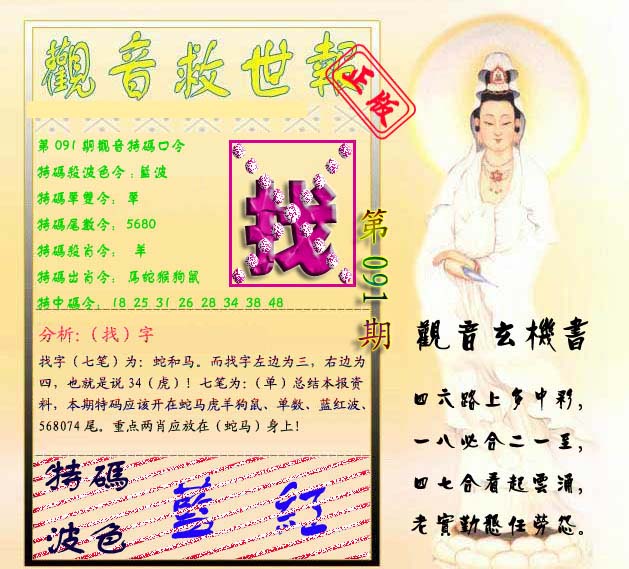 觀音救世報
正版
第091期觀音特碼口令
特碼殺波色令:藍波
特碼單雙令: 單
特碼尾數令: 5680
特碼殺肖令: 羊
特碼出肖令: 馬蛇猴狗鼠
特中碼令: 18 25 31 26 28 34 38 48
找
第091期
分析:（找）字
找字（七笔）为：蛇和马。而找字左边为三，右边为
四，也就是说34（虎）！七笔为：（单）总结本报资
料，本期特码应该开在蛇马虎羊狗鼠、单数、蓝红波、
568074尾。重点两肖应放在（蛇马）身上!
特碼
波色
藍 紅
觀音玄機書
四六路上多中彩，
一八必合二一至，
四七合看起雲涌，
老實勤懇任勞怨。